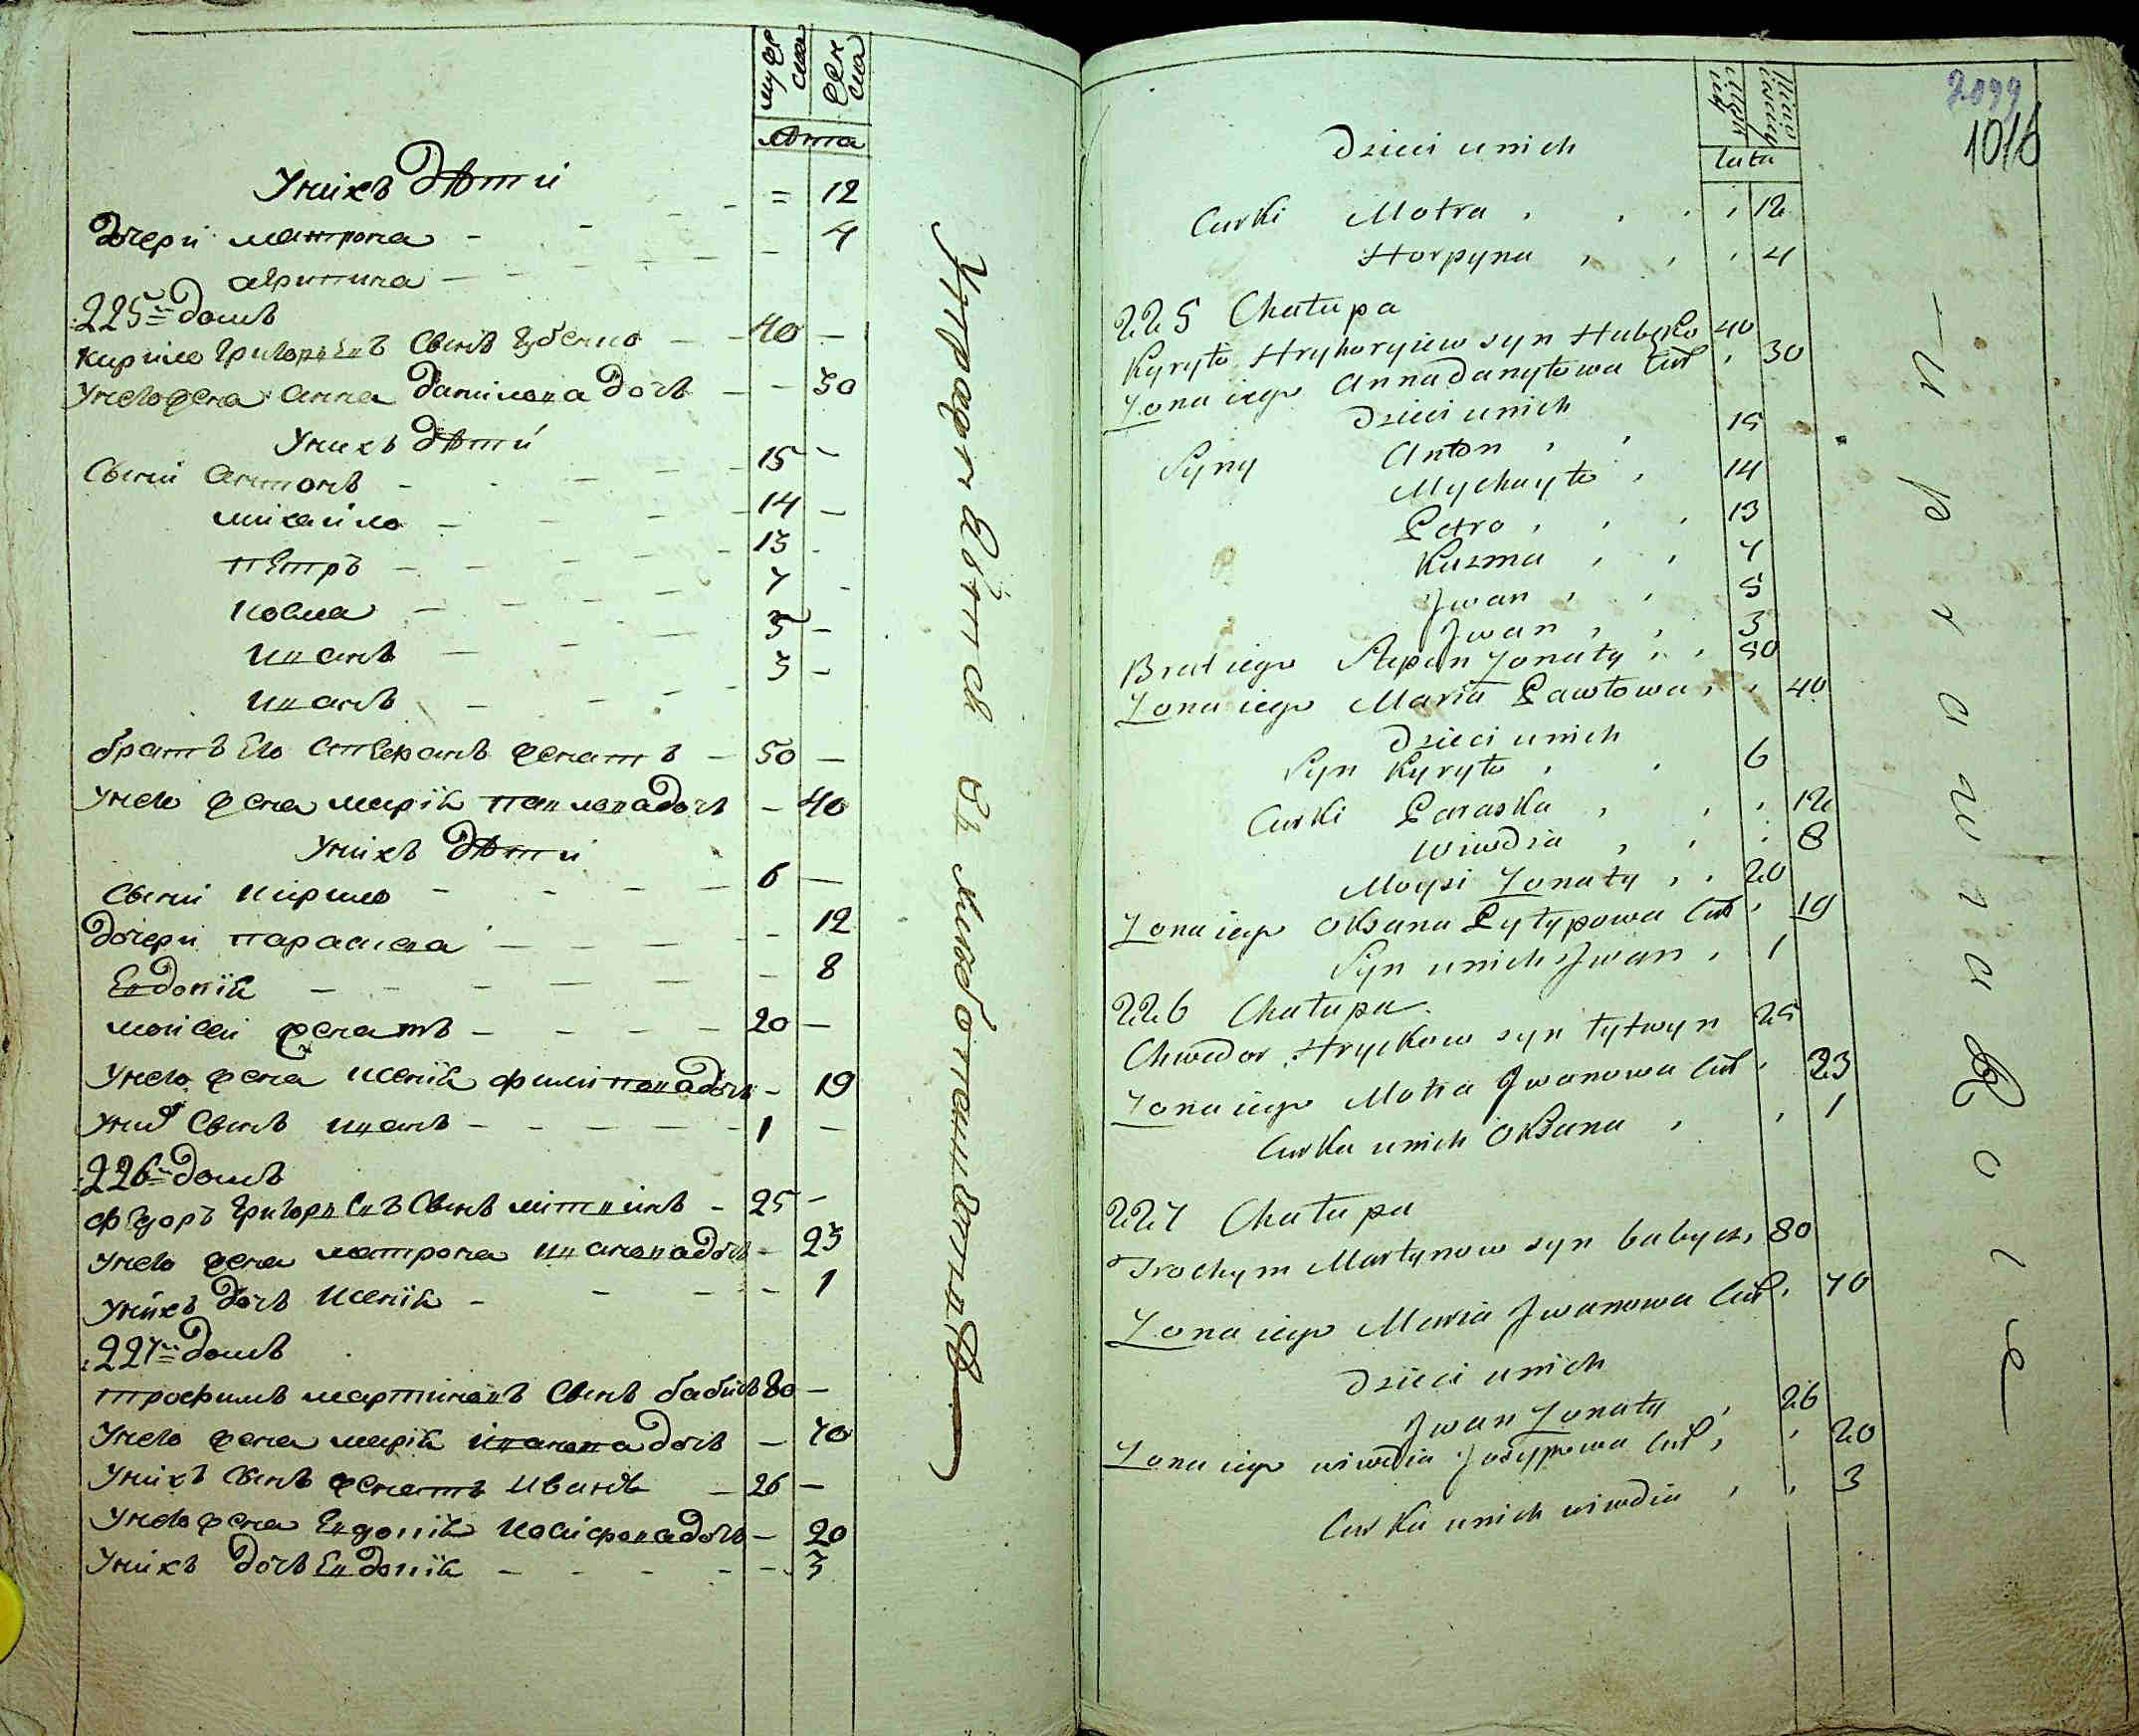 муж
ска
жен
ска
лѣта
Унихъ дѣти
дочери матрона - - - = 12
агрипина - - - - - - 4
225 домъ
кирило григорьевъ сынъ губенко - - 40 -
унего жена анна данилова дочь - - 30
Унихъ дѣти
Сыни антонъ - - - - 15 -
михайло - - - - 14 -
петръ - - - - 13 -
козма - - - - 7 -
иванъ - - - 5 -
иванъ - - - 3 -
братъ его степанъ женатъ - 50 -
унего жена марія павлова дочь - 40
Унихъ дѣти
Сыни кирило - - - - 6 -
дочери параска - - - - - 12
Евдокія - - - - - - 8
моисеи женатъ - - - - 20 -
унего жена ксенія филипова дочь - 19
унихъ сынъ иванъ - - - - - 1 -
226 домъ
федоръ григорьевъ сынъ литвинъ - 25 -
унего жена матрона иванова дочь - 23
унихъ дочь ксенія - - - - 1
227 домъ
трофимъ мартиновъ сынъ бабичъ 80 -
унего жена марія иванова дочь - 70
унихъ сынъ женатъ иванъ - 26 -
унего жена Евдокія иосифова дочь - 20
унихъ дочь Евдокія - - - - - 3
2099
1016
lata
Dzieci u nich
Curki Motra , , , , 12
Horpyna , , , 4
225 Chałupa
Kyryło Hryhoryiew syn Hubęko 40
Zona iego Anna Danyłowa cur , 30
Dzieci u nich
Syny Anton , , 15
Mychayło , 14
Petro , , , 13
Kuzma , , 7
Jwan , , 5
Jwan , , 3
Brat iego Stepan Zonaty , , 50
Zona iego Maria Pawłowa , , 40
Dzieci u nich
Syn Kyryło , , 6
Curki Paraska , , , 12
Wiwdia , , , 8
Moysi Zonaty , , 20
Zona iego Oksana Pyłypowa cur , 19
Syn u nich Jwan , 1
226 Chałupa
Chwedor Hryckow syn Łytwyn 25
Zona iego Motra Jwanowa cur , 23
Curka u nich Oksana , , 1
227 Chałupa
Trochym Martynow syn babycz , 80
Zona iego Maria Jwanowa cur , 70
Dzieci u nich
Jwan Zonaty , 26
Zona iego wiwdia Josypowa cur , , 20
Curka u nich wiwdia , , 3